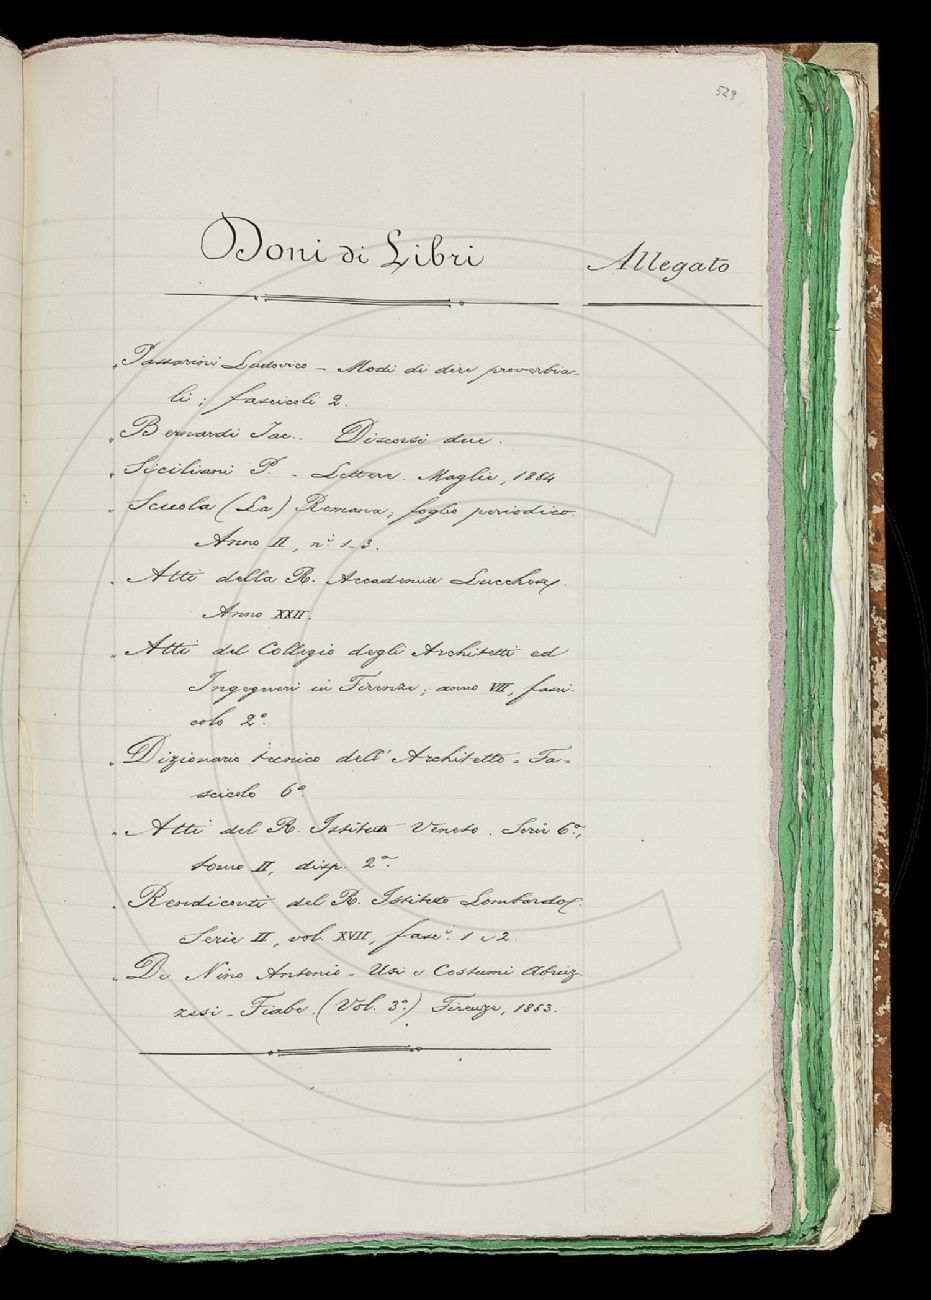 529
Doni di Libri
Allegato
„ Passarini Ludovico – Modi di dire proverbia-
li; fascicoli 2.
„ Bernardi Jac. – Discorsi due.
„ Siciliani P. – Lettere. Maglie, 1884
„ Scuola (La) Romana; foglio periodico.
Anno II, n.i 1-3.
„ Atti della R. Accademia Lucchese.
Anno XXII.
„ Atti del Collegio degli Architetti ed
Ingegneri in Firenze; anno VII, fasci-
colo 2°.
„ Dizionario tecnico dell'Architetto – Fa-
scicolo 6°.
„ Atti del R. Istituto Veneto. Serie 6a,
tomo II, disp. 2a.
„ Rendiconti del R. Istituto Lombardo.
Serie II, vol. XVII, fasc.i 1 e 2.
„ De Nino Antonio – Usi e Costumi Abruz-
zesi – Fiabe. (Vol. 3°.) Firenze, 1883.